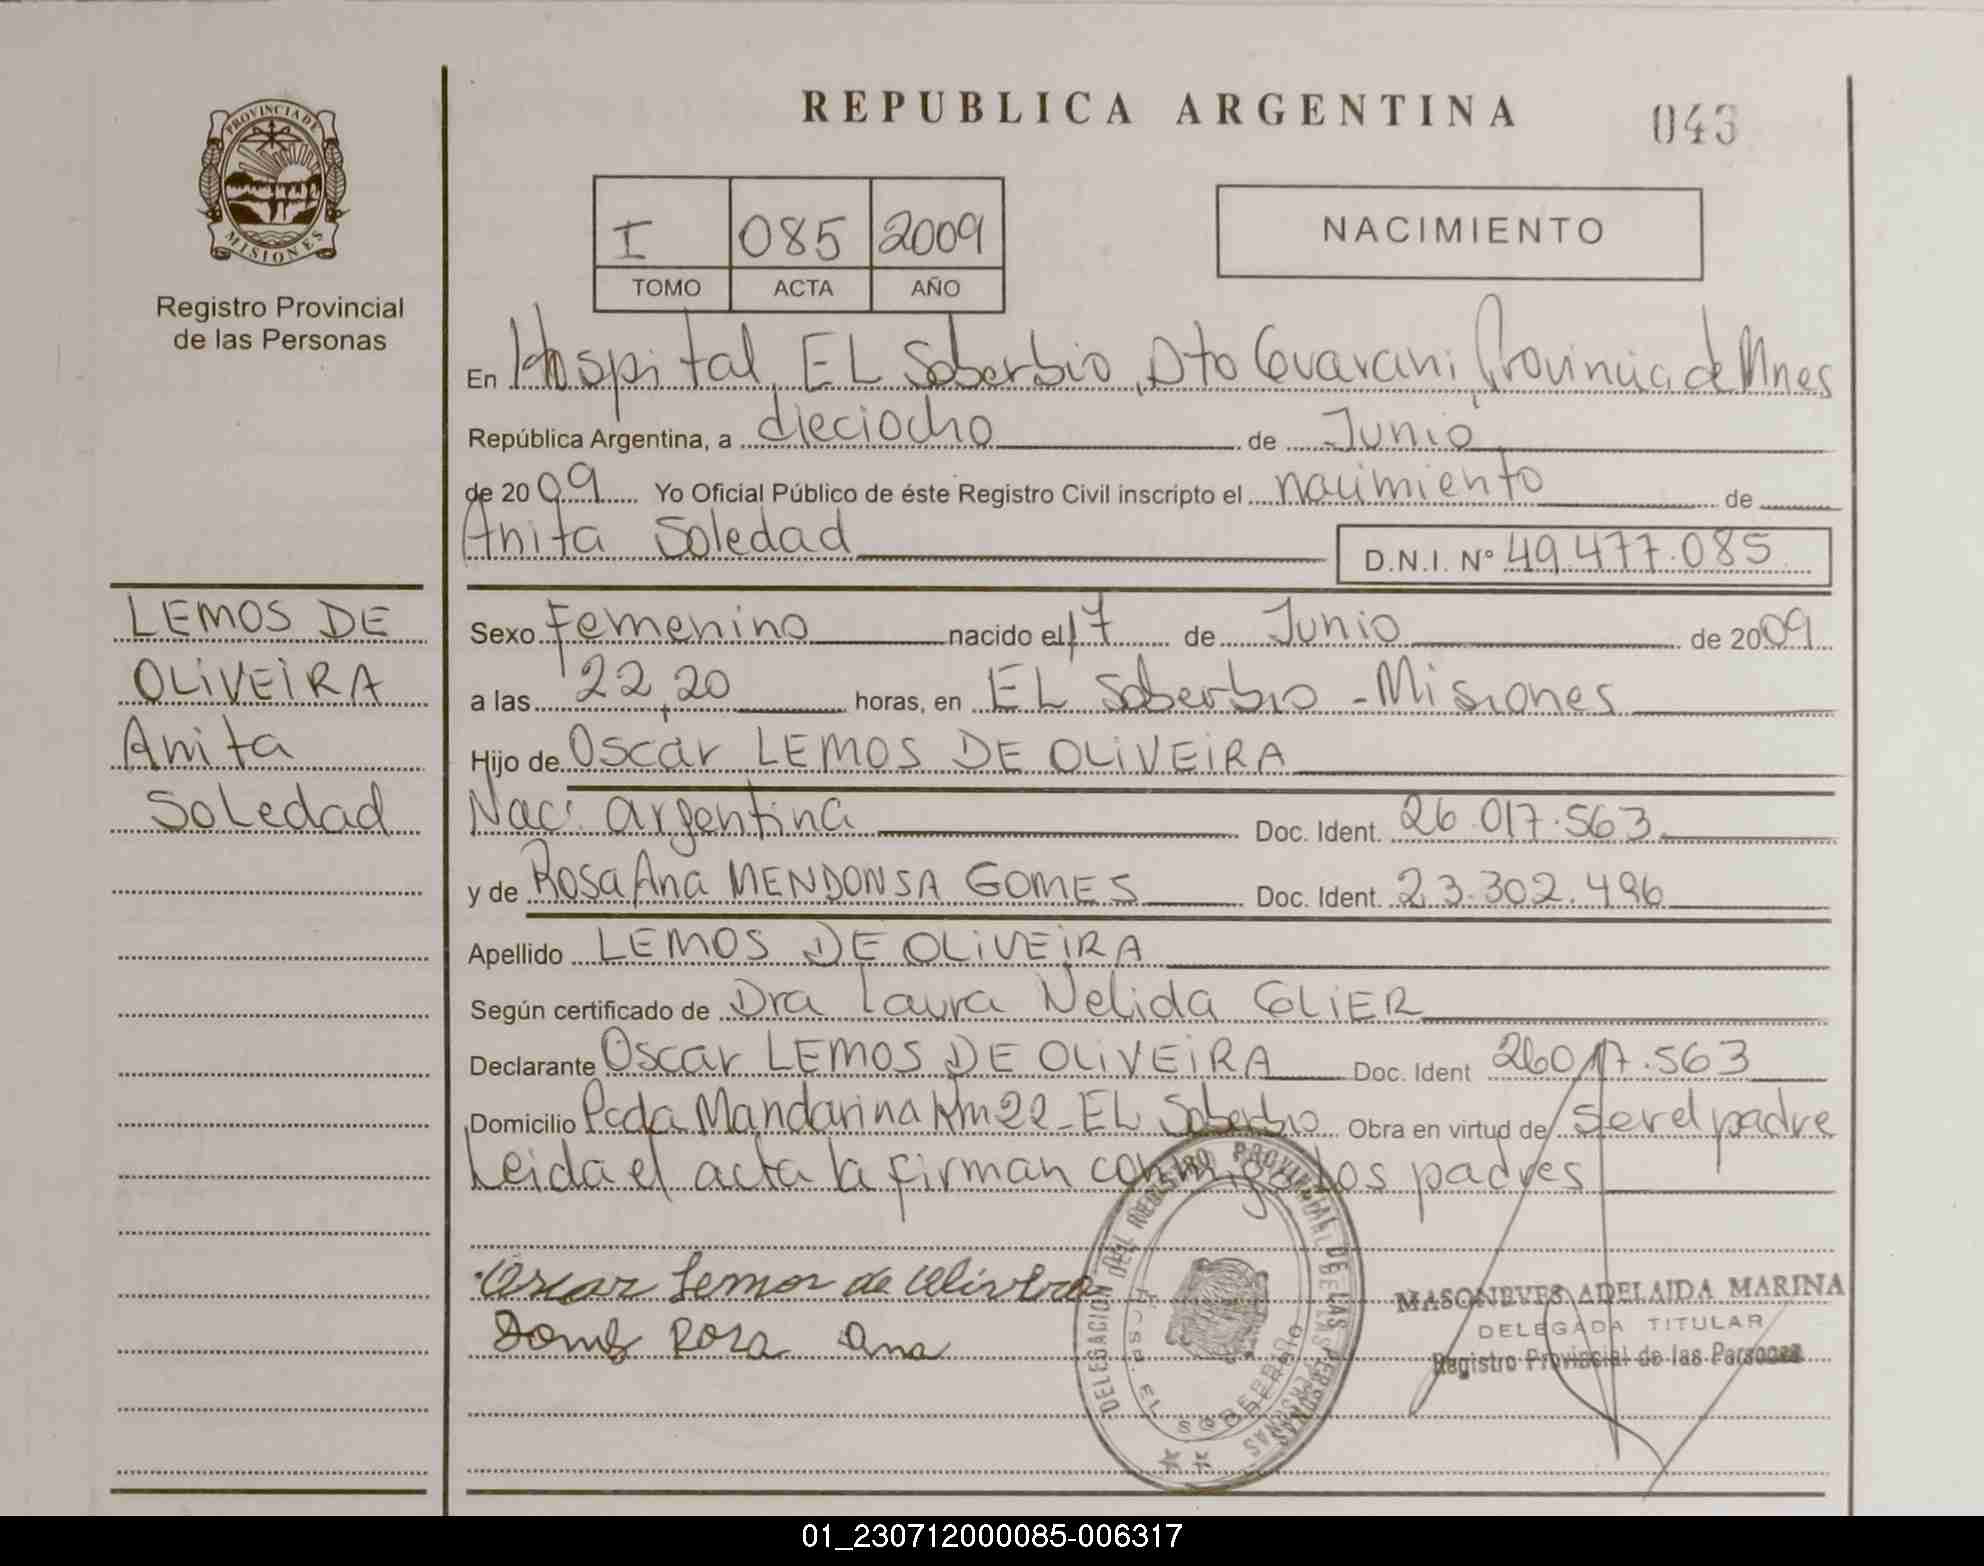 REPUBLICA ARGENTINA
043
PROVINCIA DE
MISIONES
Registro Provincial
de las Personas
I 085 2009
TOMO ACTA AÑO
NACIMIENTO
En Hospital, EL Soberbio, Dto Guarani, Provincia de Mnes
República Argentina, a dieciocho de Junio
de 2009 Yo Oficial Público de éste Registro Civil inscripto el nacimiento de
Anita Soledad
D.N.I. Nº 49.477.085
LEMOS DE
OLIVEIRA
Anita
Soledad
Sexo Femenino nacido el 17 de Junio de 2009
a las 22,20 horas, en EL Soberbio - Misiones
Hijo de Oscar LEMOS DE OLIVEIRA
Nac: argentina Doc. Ident. 26.017.563
y de Rosa Ana MENDONSA GOMES Doc. Ident. 23.302.496
Apellido LEMOS DE OLIVEIRA
Según certificado de Dra Laura Nelida GLIER
Declarante Oscar LEMOS DE OLIVEIRA Doc. Ident 26017.563
Domicilio Pcda Mandarina Km 22 - EL Soberbio Obra en virtud de ser el padre
Leida el acta la firman conmigo los padres
Oscar Lemos de Oliveira
Rosa Ana
DELEGACION DEL REGISTRO PROVINCIAL DE LAS PERSONAS
EL SOBERBIO
MASONEVES ADELAIDA MARINA
DELEGADA TITULAR
Registro Provincial de las Personas
01_230712000085-006317